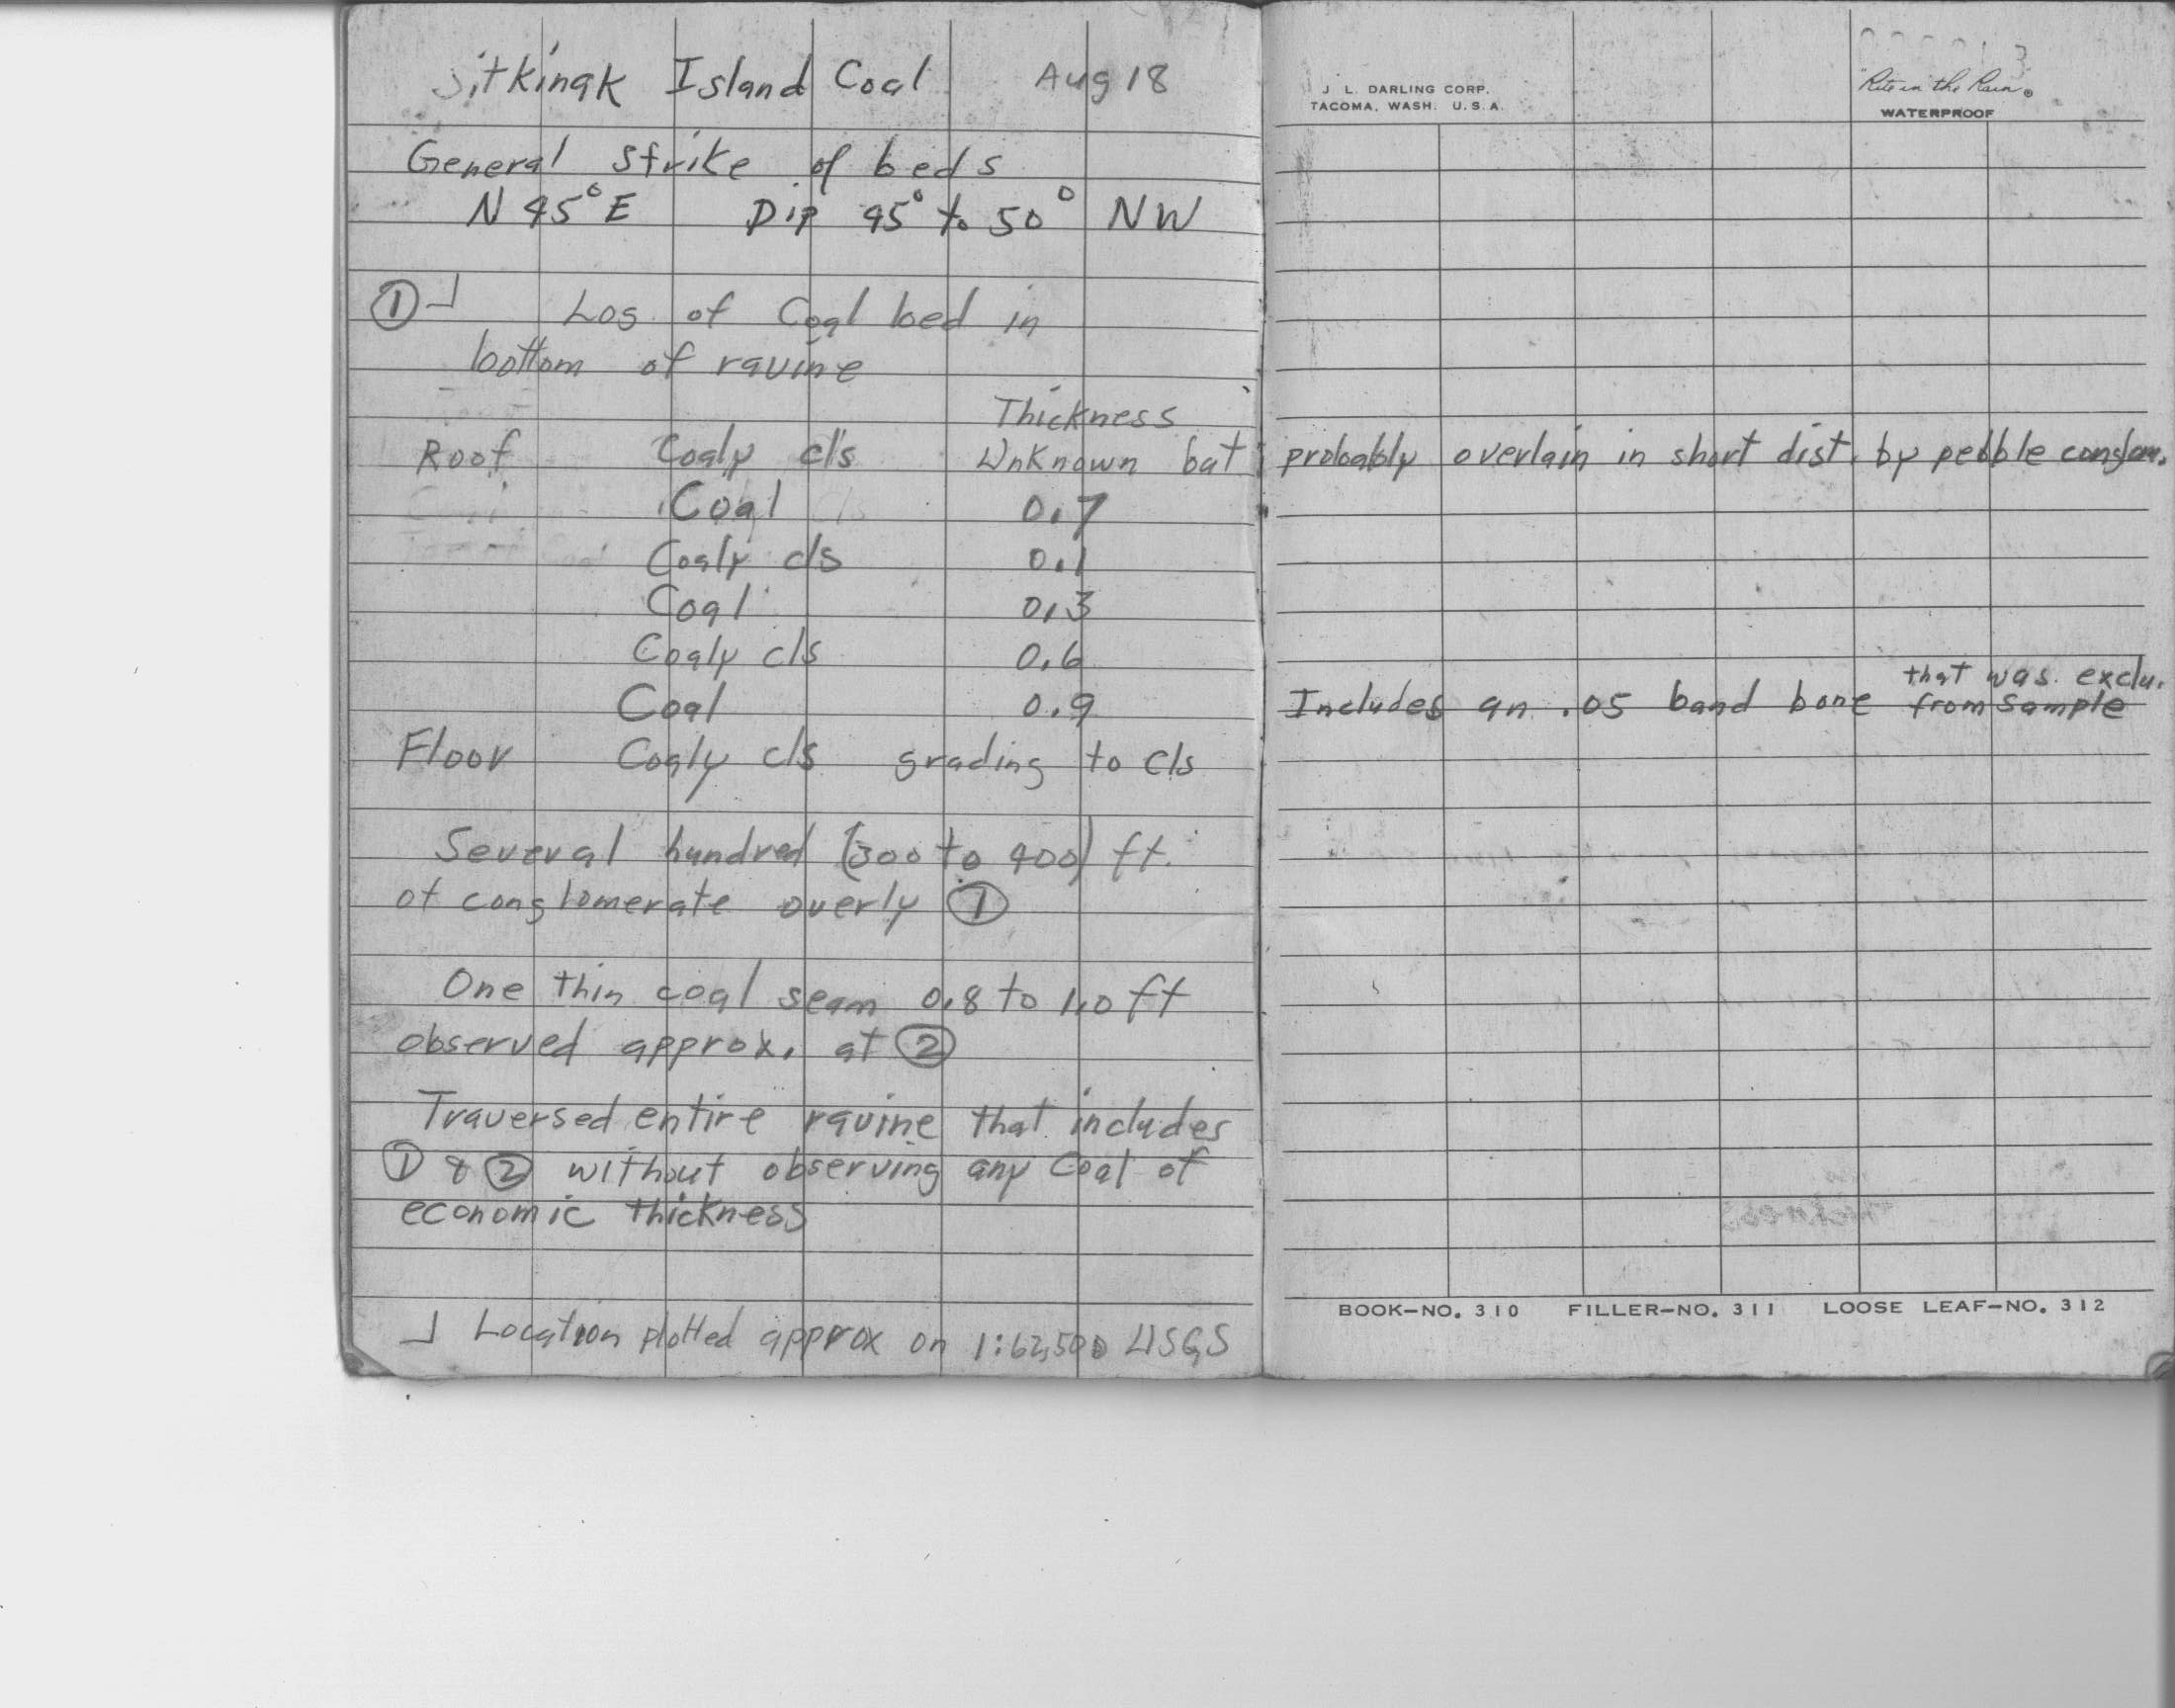 Sitkinak Island Coal Aug 18
General Strike of beds
N 45° E Dip 45° to 50° NW
① ┘ Log of Coal bed in
bottom of ravine
Thickness
Roof Coaly cls Unknown but probably overlain in short dist. by pebble conglom.
Coal 0.7
Coaly cls 0.1
Coal 0.3
Coaly cls 0.6
Coal 0.9 Includes an .05 band bone that was exclu. from sample
Floor Coaly cls grading to cls
Several hundred (300 to 400) ft.
of conglomerate overly ①
One thin coal seam 0.8 to 1.0 ft
observed approx. at ②
Traversed entire ravine that includes
① & ② without observing any Coal of
economic thickness
┘ Location plotted approx on 1:63,500 USGS
J. L. DARLING CORP.
TACOMA, WASH. U.S.A.
"Rite in the Rain"®
WATERPROOF
BOOK-NO. 310 FILLER-NO. 311 LOOSE LEAF-NO. 312